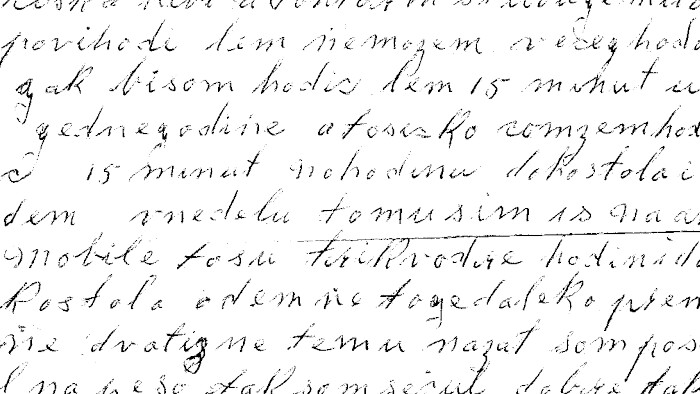 povihode lem nemozem veceghodo
gak bisom hodic lem 15 minut u
gednegodine atosisko comzemhod
c 15 minut nahodinu dokostola i
dem vnedelu tomusim is na a
mobile tosu trikvodre hodini d
kostola odem ne togedaleko pren
ne dvatizne temu nazat som pos
l na peso tak som sicul dobre tak